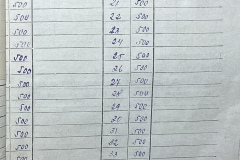 500 21 500
500 22 500
500 23 500
500 24 500
500 25 500
500 26 500
500 27 500
500 28 500
500 29 500
500 30 500
500 31 500
500 32 500
500 33 500